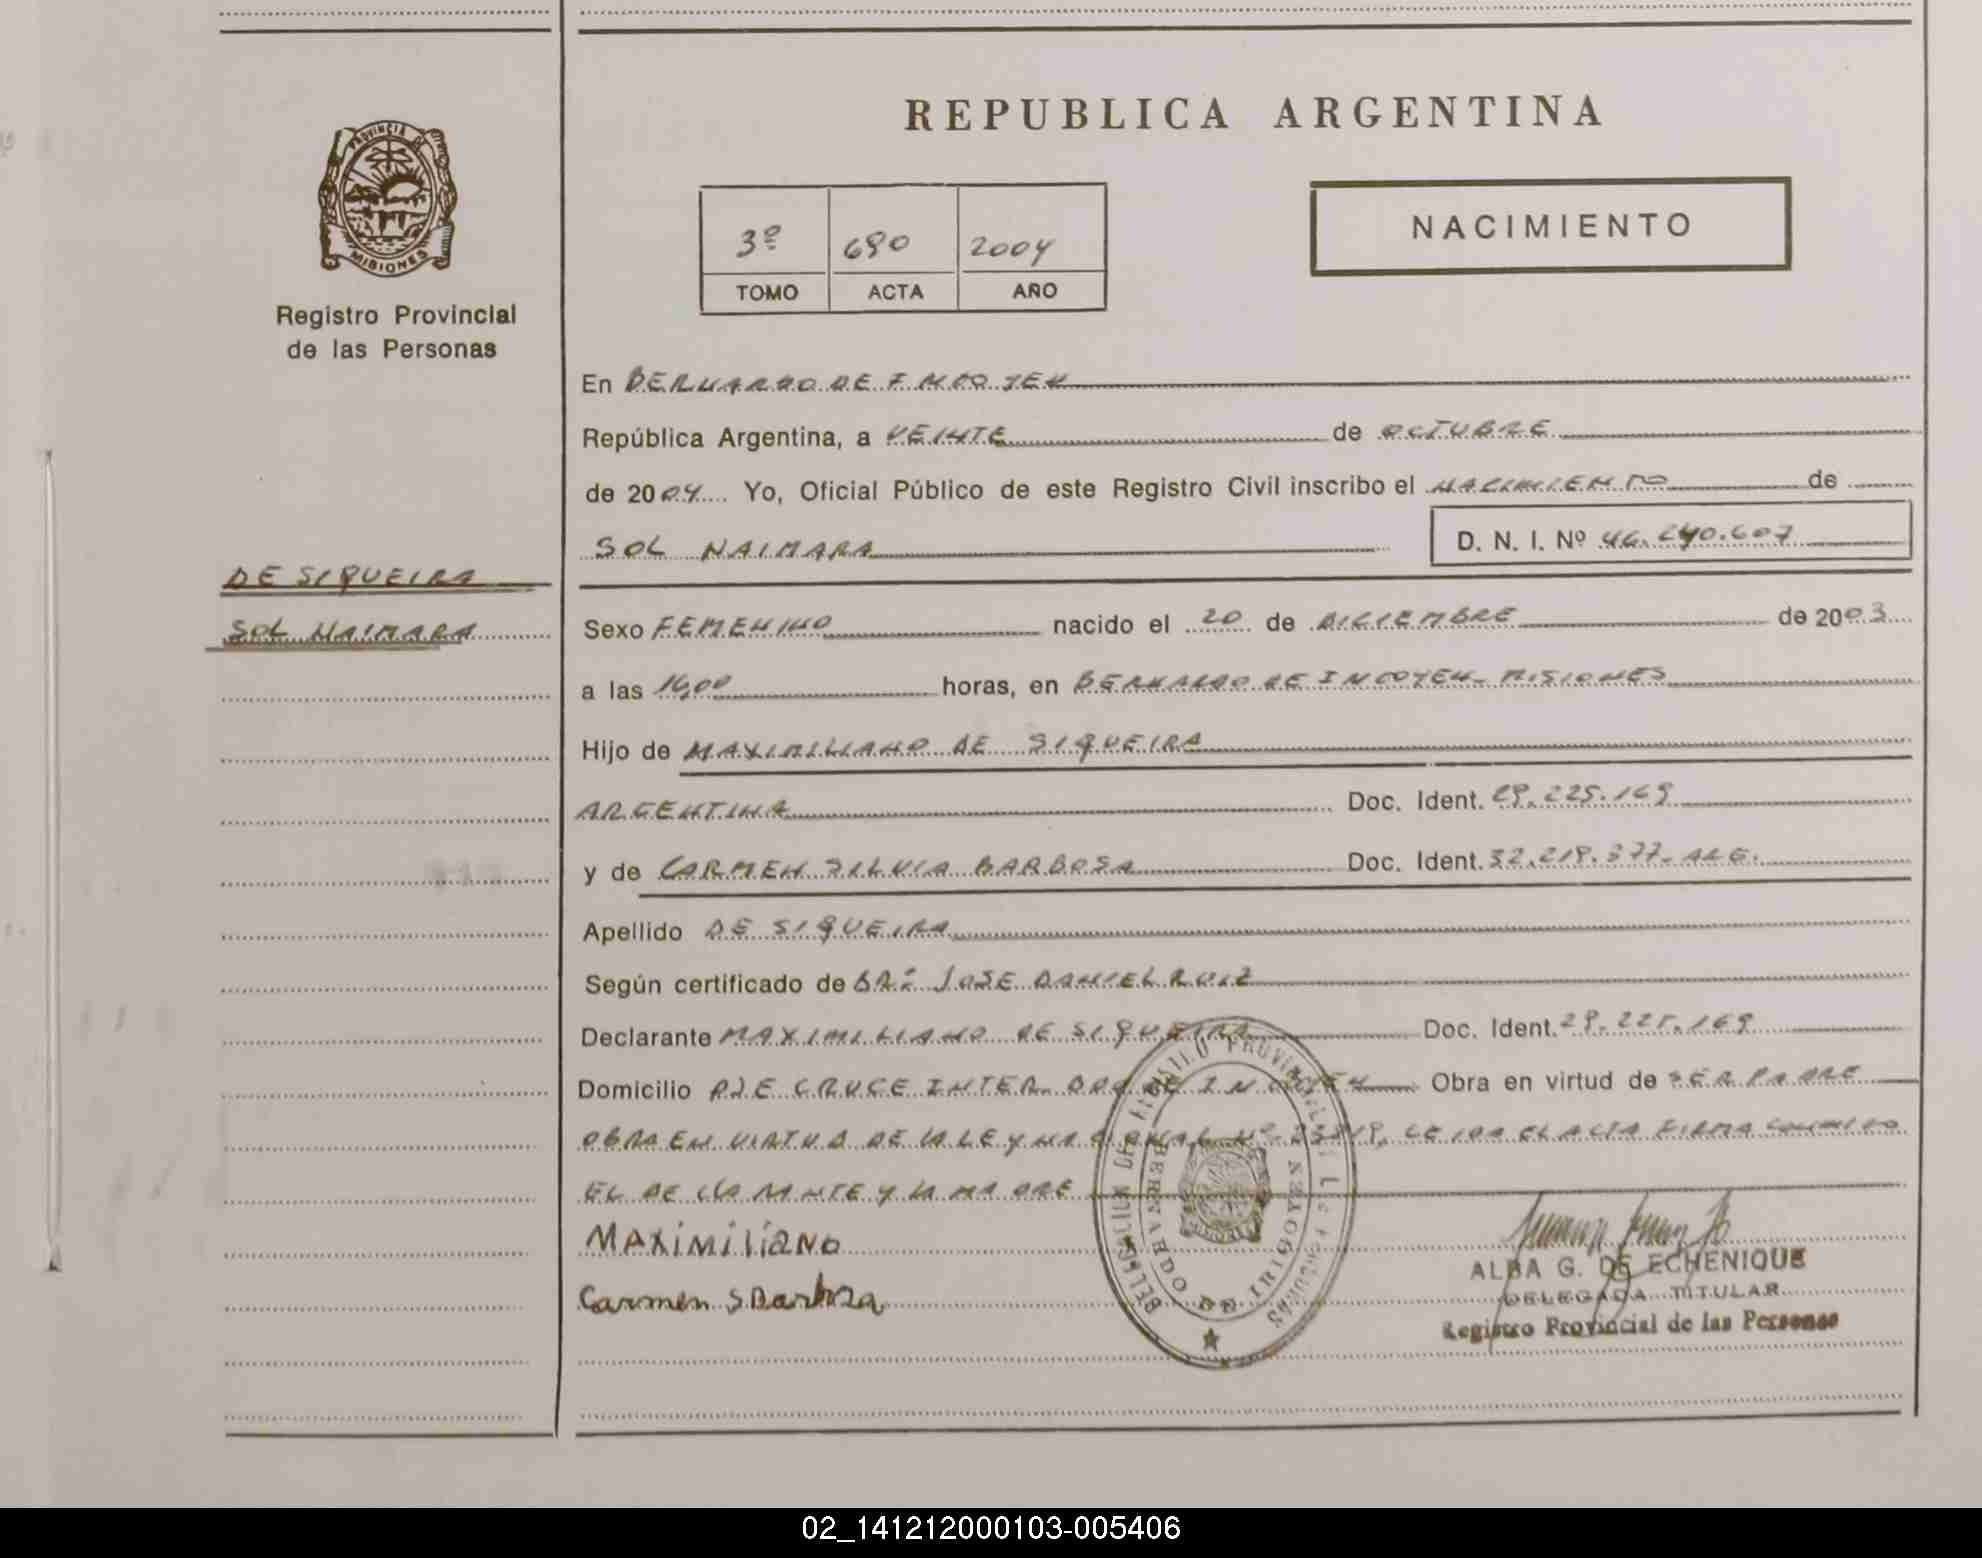 REPUBLICA ARGENTINA
PROVINCIA DE
MISIONES
Registro Provincial
de las Personas
NACIMIENTO
3º 690 2004
TOMO ACTA AÑO
En BERNARDO DE IRIGOYEN
República Argentina, a VEINTE de OCTUBRE
de 2004 Yo, Oficial Público de este Registro Civil inscribo el NACIMIENTO de
SOL NAIMARA D. N. I. Nº 46.240.607
DE SIQUEIRA
SOL NAIMARA
Sexo FEMENINO nacido el 20 de DICIEMBRE de 2003
a las 16,00 horas, en BERNARDO DE IRIGOYEN- MISIONES
Hijo de MAXIMILIANO DE SIQUEIRA
ARGENTINA Doc. Ident. 29.225.169
y de CARMEN SILVIA BARBOSA Doc. Ident. 32.219.377- ARG.
Apellido DE SIQUEIRA
Según certificado de DR: JOSE DANIEL RUIZ
Declarante MAXIMILIANO DE SIQUEIRA Doc. Ident. 29.225.169
Domicilio PJE CRUCE INTER. Obra en virtud de SER PADRE
OBRA EN VIRTUD DE LA LEY NACIONAL Nº LEIDA EL ACTA FIRMA CONMIGO
EL DECLARANTE Y LA MADRE
MAXiMiliaNo
Carmen S Barboza
BERNARDO DE IRIGOYEN
ALBA G. DE ECHENIQUE
DELEGADA TITULAR
Registro Provincial de las Personas
02_141212000103-005406